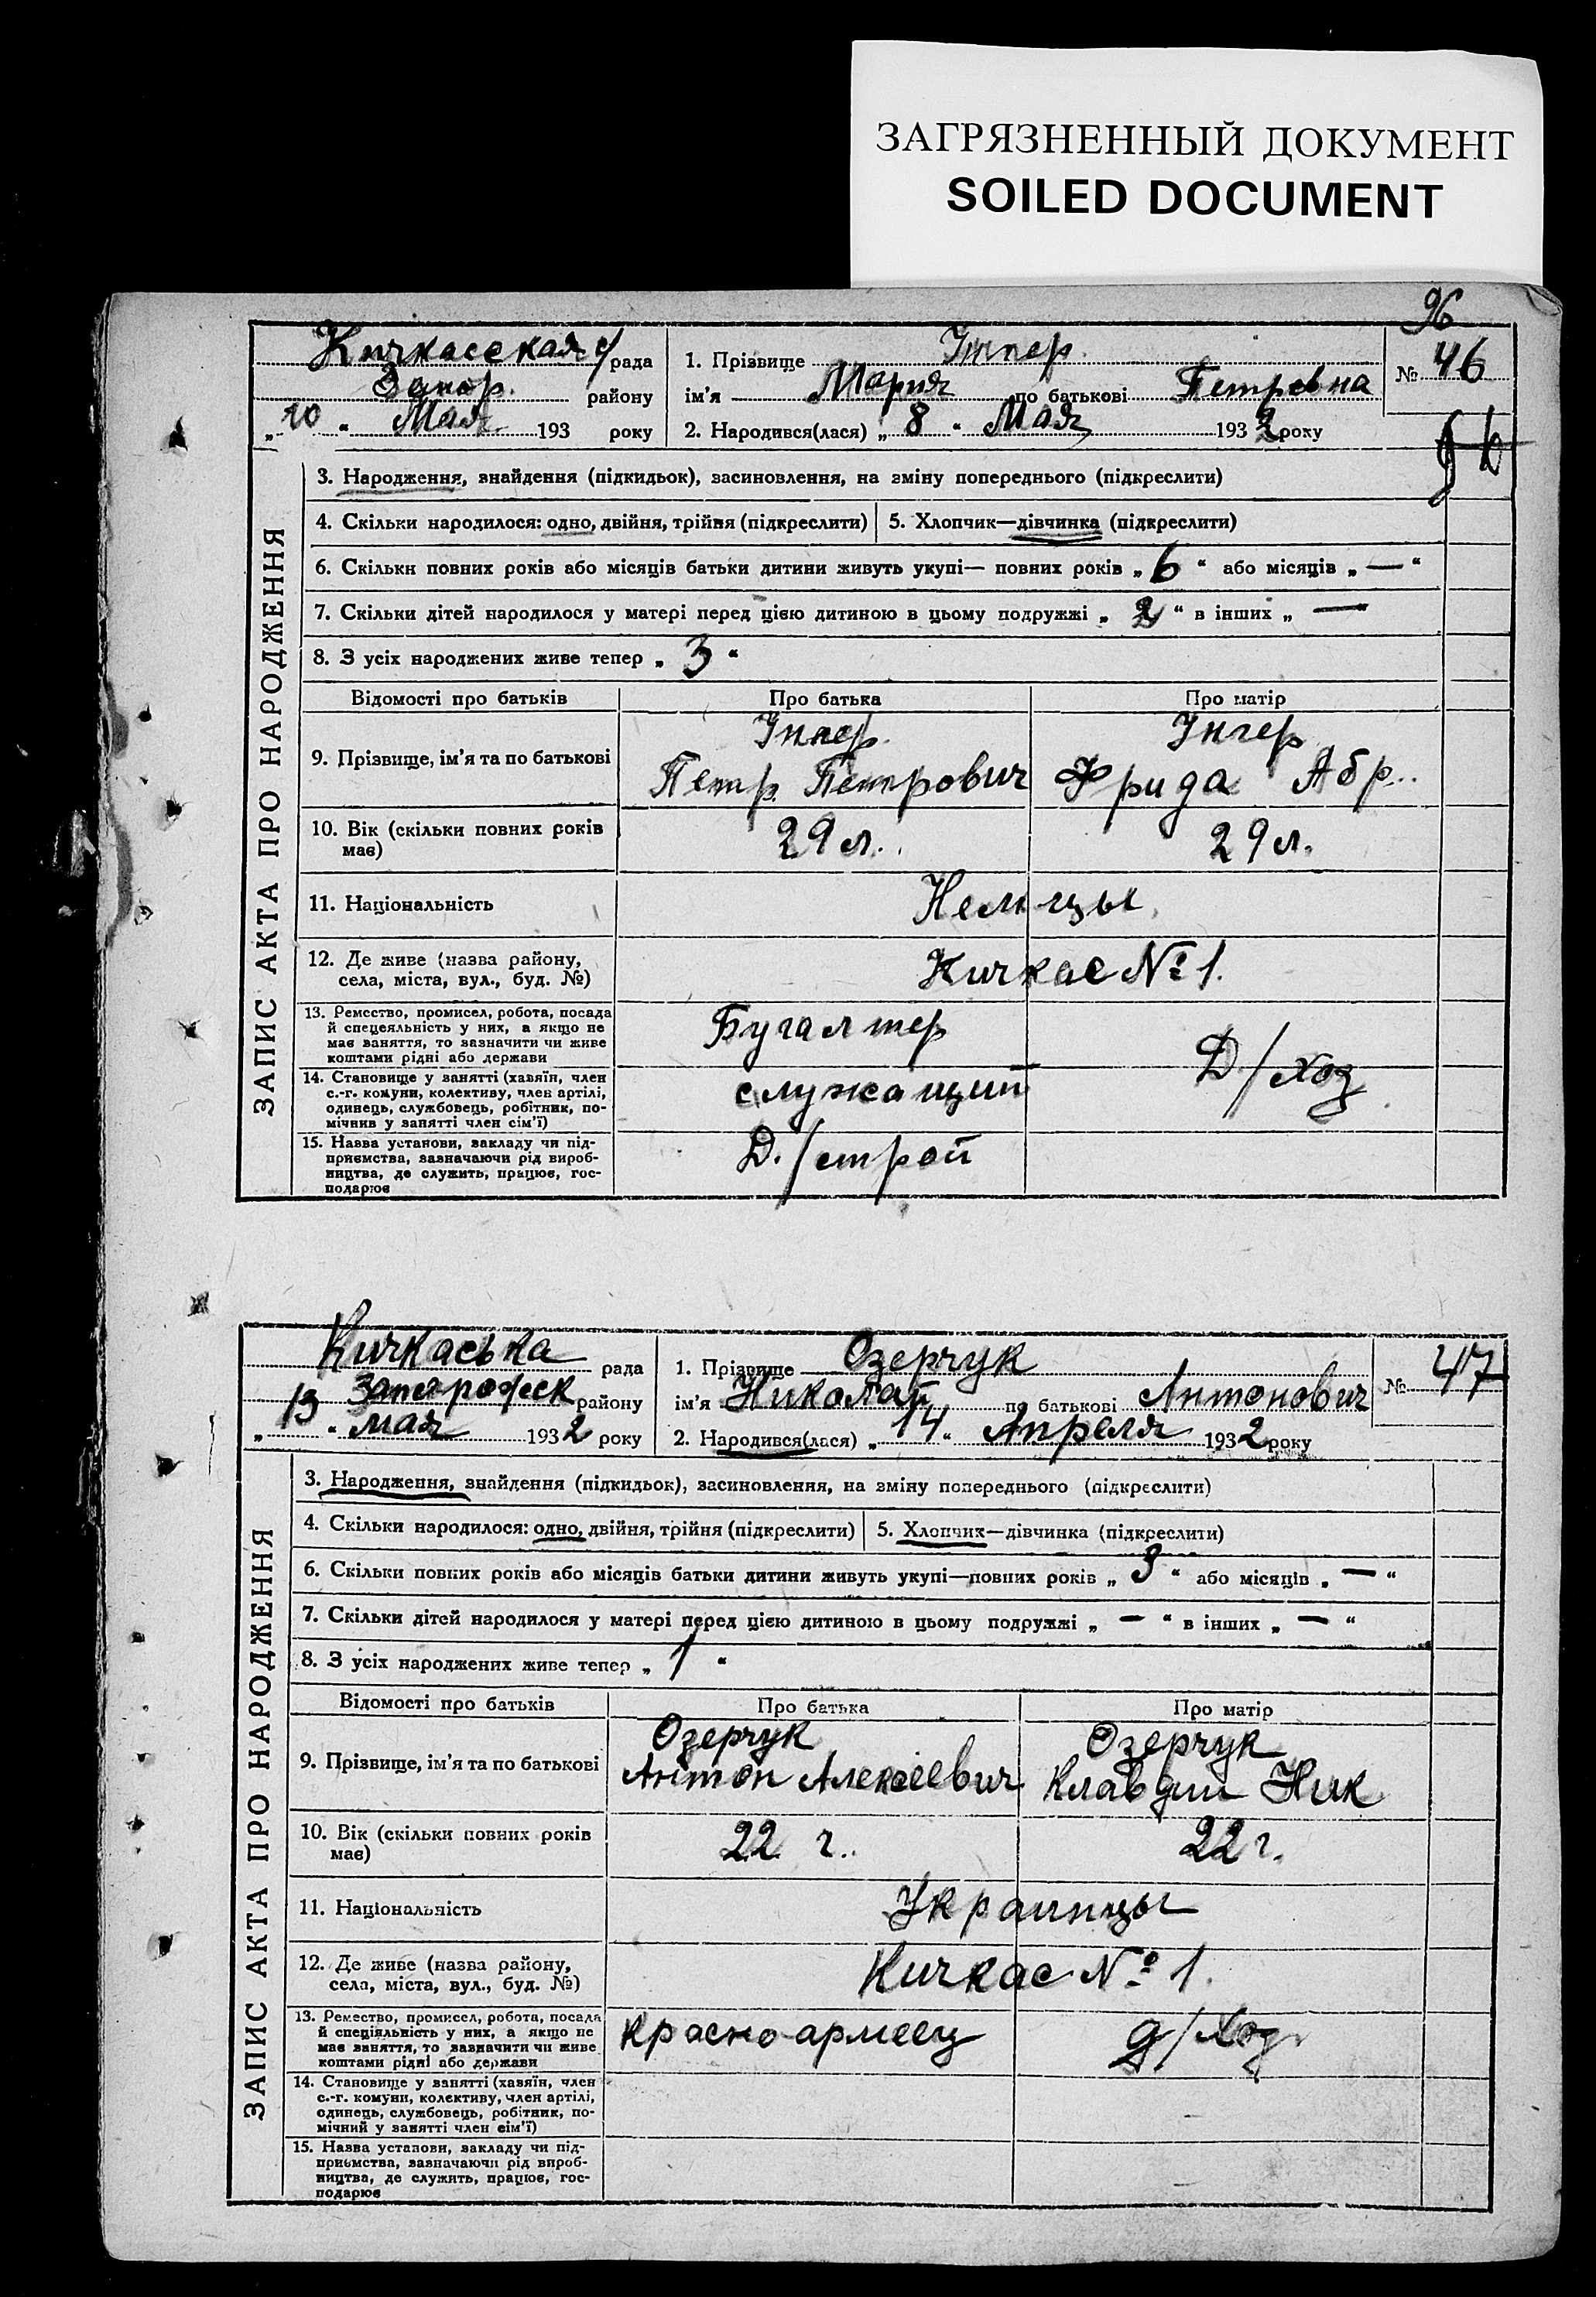 ЗАГРЯЗНЕННЫЙ ДОКУМЕНТ
SOILED DOCUMENT
96
Кичкасская с/рада
Запор. району
„10“ Мая 193 року
1. Прізвище
ім'я Мария по батькові Петровна
2. Народився(лася) „8“ Мая 1932 року
№ 46
ЗАПИС АКТА ПРО НАРОДЖЕННЯ
3. Народження, знайдення (підкидьок), засиновлення, на зміну попереднього (підкреслити)
4. Скільки народилося: одно, двійня, трійня (підкреслити) 5. Хлопчик—дівчинка (підкреслити)
6. Скільки повних років або місяців батьки дитини живуть укупі— повних років „6“ або місяців „—“
7. Скільки дітей народилося у матері перед цією дитиною в цьому подружжі „2“ в інших „—“
8. З усіх народжених живе тепер „3“
Відомості про батьків Про батька Про матір
9. Прізвище, ім'я та по батькові
Петр Петрович Фрида Абр..
10. Вік (скільки повних років має) 29 л. 29 л.
11. Національність Немцы
12. Де живе (назва району, села, міста, вул., буд. №) Кичкас № 1.
13. Ремество, промисел, робота, посада
й спецеяльність у них, а якщо не
має заняття, то зазначити чи живе
коштами рідні або держави
Бугалтер Д./хоз
14. Становище у занятті (хазяїн, член
с.-г. комуни, колективу, член артілі,
одинець, службовець, робітник, по-
мічнив у занятті член сім'ї)
служащий
15. Назва установи, закладу чи під-
приємства, зазначаючи рід вироб-
ництва, де служить, працює, гос-
подарює
Д./строй
Кичкаська рада
Запорожск району
„13“ мая 1932 року
1. Прізвище Озерчук
ім'я Николай по батькові Антонович
2. Народився(лася) „14“ Апреля 1932 року
№ 47
ЗАПИС АКТА ПРО НАРОДЖЕННЯ
3. Народження, знайдення (підкидьок), засиновлення, на зміну попереднього (підкреслити)
4. Скільки народилося: одно, двійня, трійня (підкреслити) 5. Хлопчик—дівчинка (підкреслити)
6. Скільки повних років або місяців батьки дитини живуть укупі—повних років „3“ або місяців „—“
7. Скільки дітей народилося у матері перед цією дитиною в цьому подружжі „—“ в інших „—“
8. З усіх народжених живе тепер „1“
Відомості про батьків Про батька Про матір
9. Прізвище, ім'я та по батькові Озерчук Озерчук
Антон Алексеевич Клавдии Ник
10. Вік (скільки повних років має) 22 г. 22 г.
11. Національність Украинцы
12. Де живе (назва району, села, міста, вул., буд. №) Кичкас № 1.
13. Ремество, промисел, робота, посада
й спеціяльність у них, а якщо не
має заняття, то зазначити чи живе
коштами рідні або держави
красно-армеец д/хоз
14. Становище у занятті (хазяїн, член
с.-г. комуни, колективу, член артілі,
одинець, службовець, робітник, по-
мічний у занятті член сім'ї)
15. Назва установи, закладу чи під-
приємства, зазначаючи рід вироб-
ництва, де служить, працює, гос-
подарює